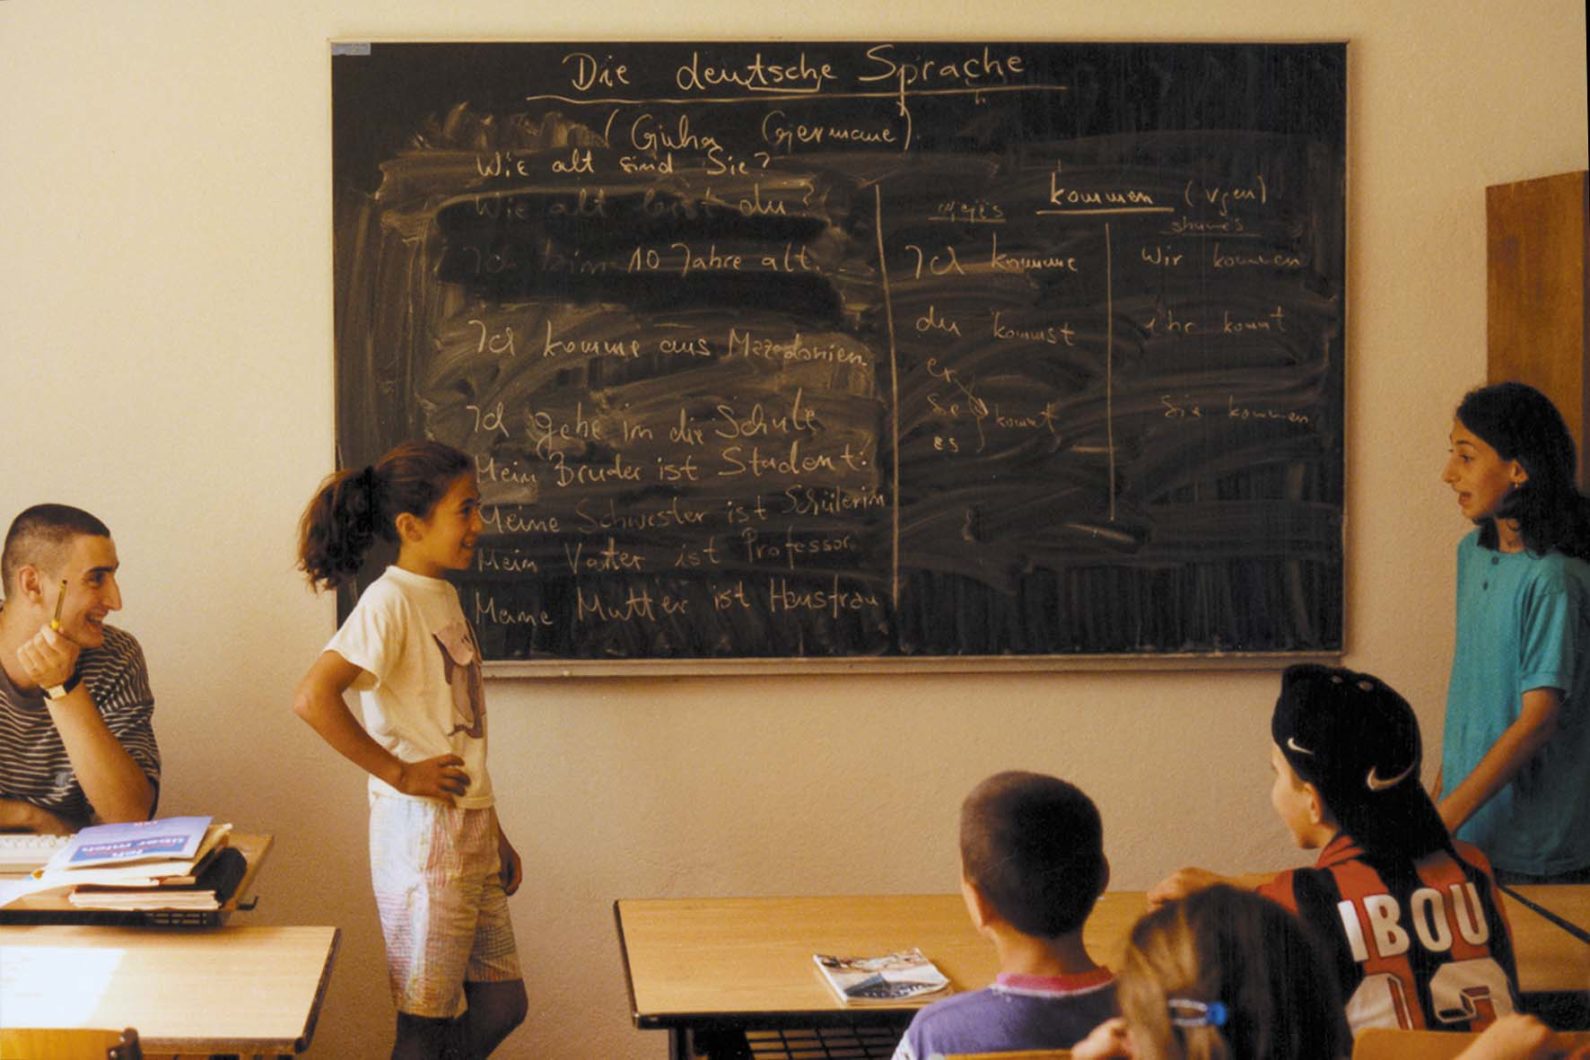 Die deutsche Sprache
(Guha Germane)
Wie alt sind Sie?
Wie alt bist du?
Ich bin 10 Jahre alt.
Ich komme aus Mazedonien
Ich gehe in die Schule
Mein Bruder ist Student.
Meine Schwester ist Schülerin
Mein Vatter ist Professor
Meine Mutter ist Hausfrau
kommen (vjen)
njejës
shumës
Ich komme
du kommst
er
sie
kommt
es
Wir kommen
ihr kommt
Sie kommen
IBOU